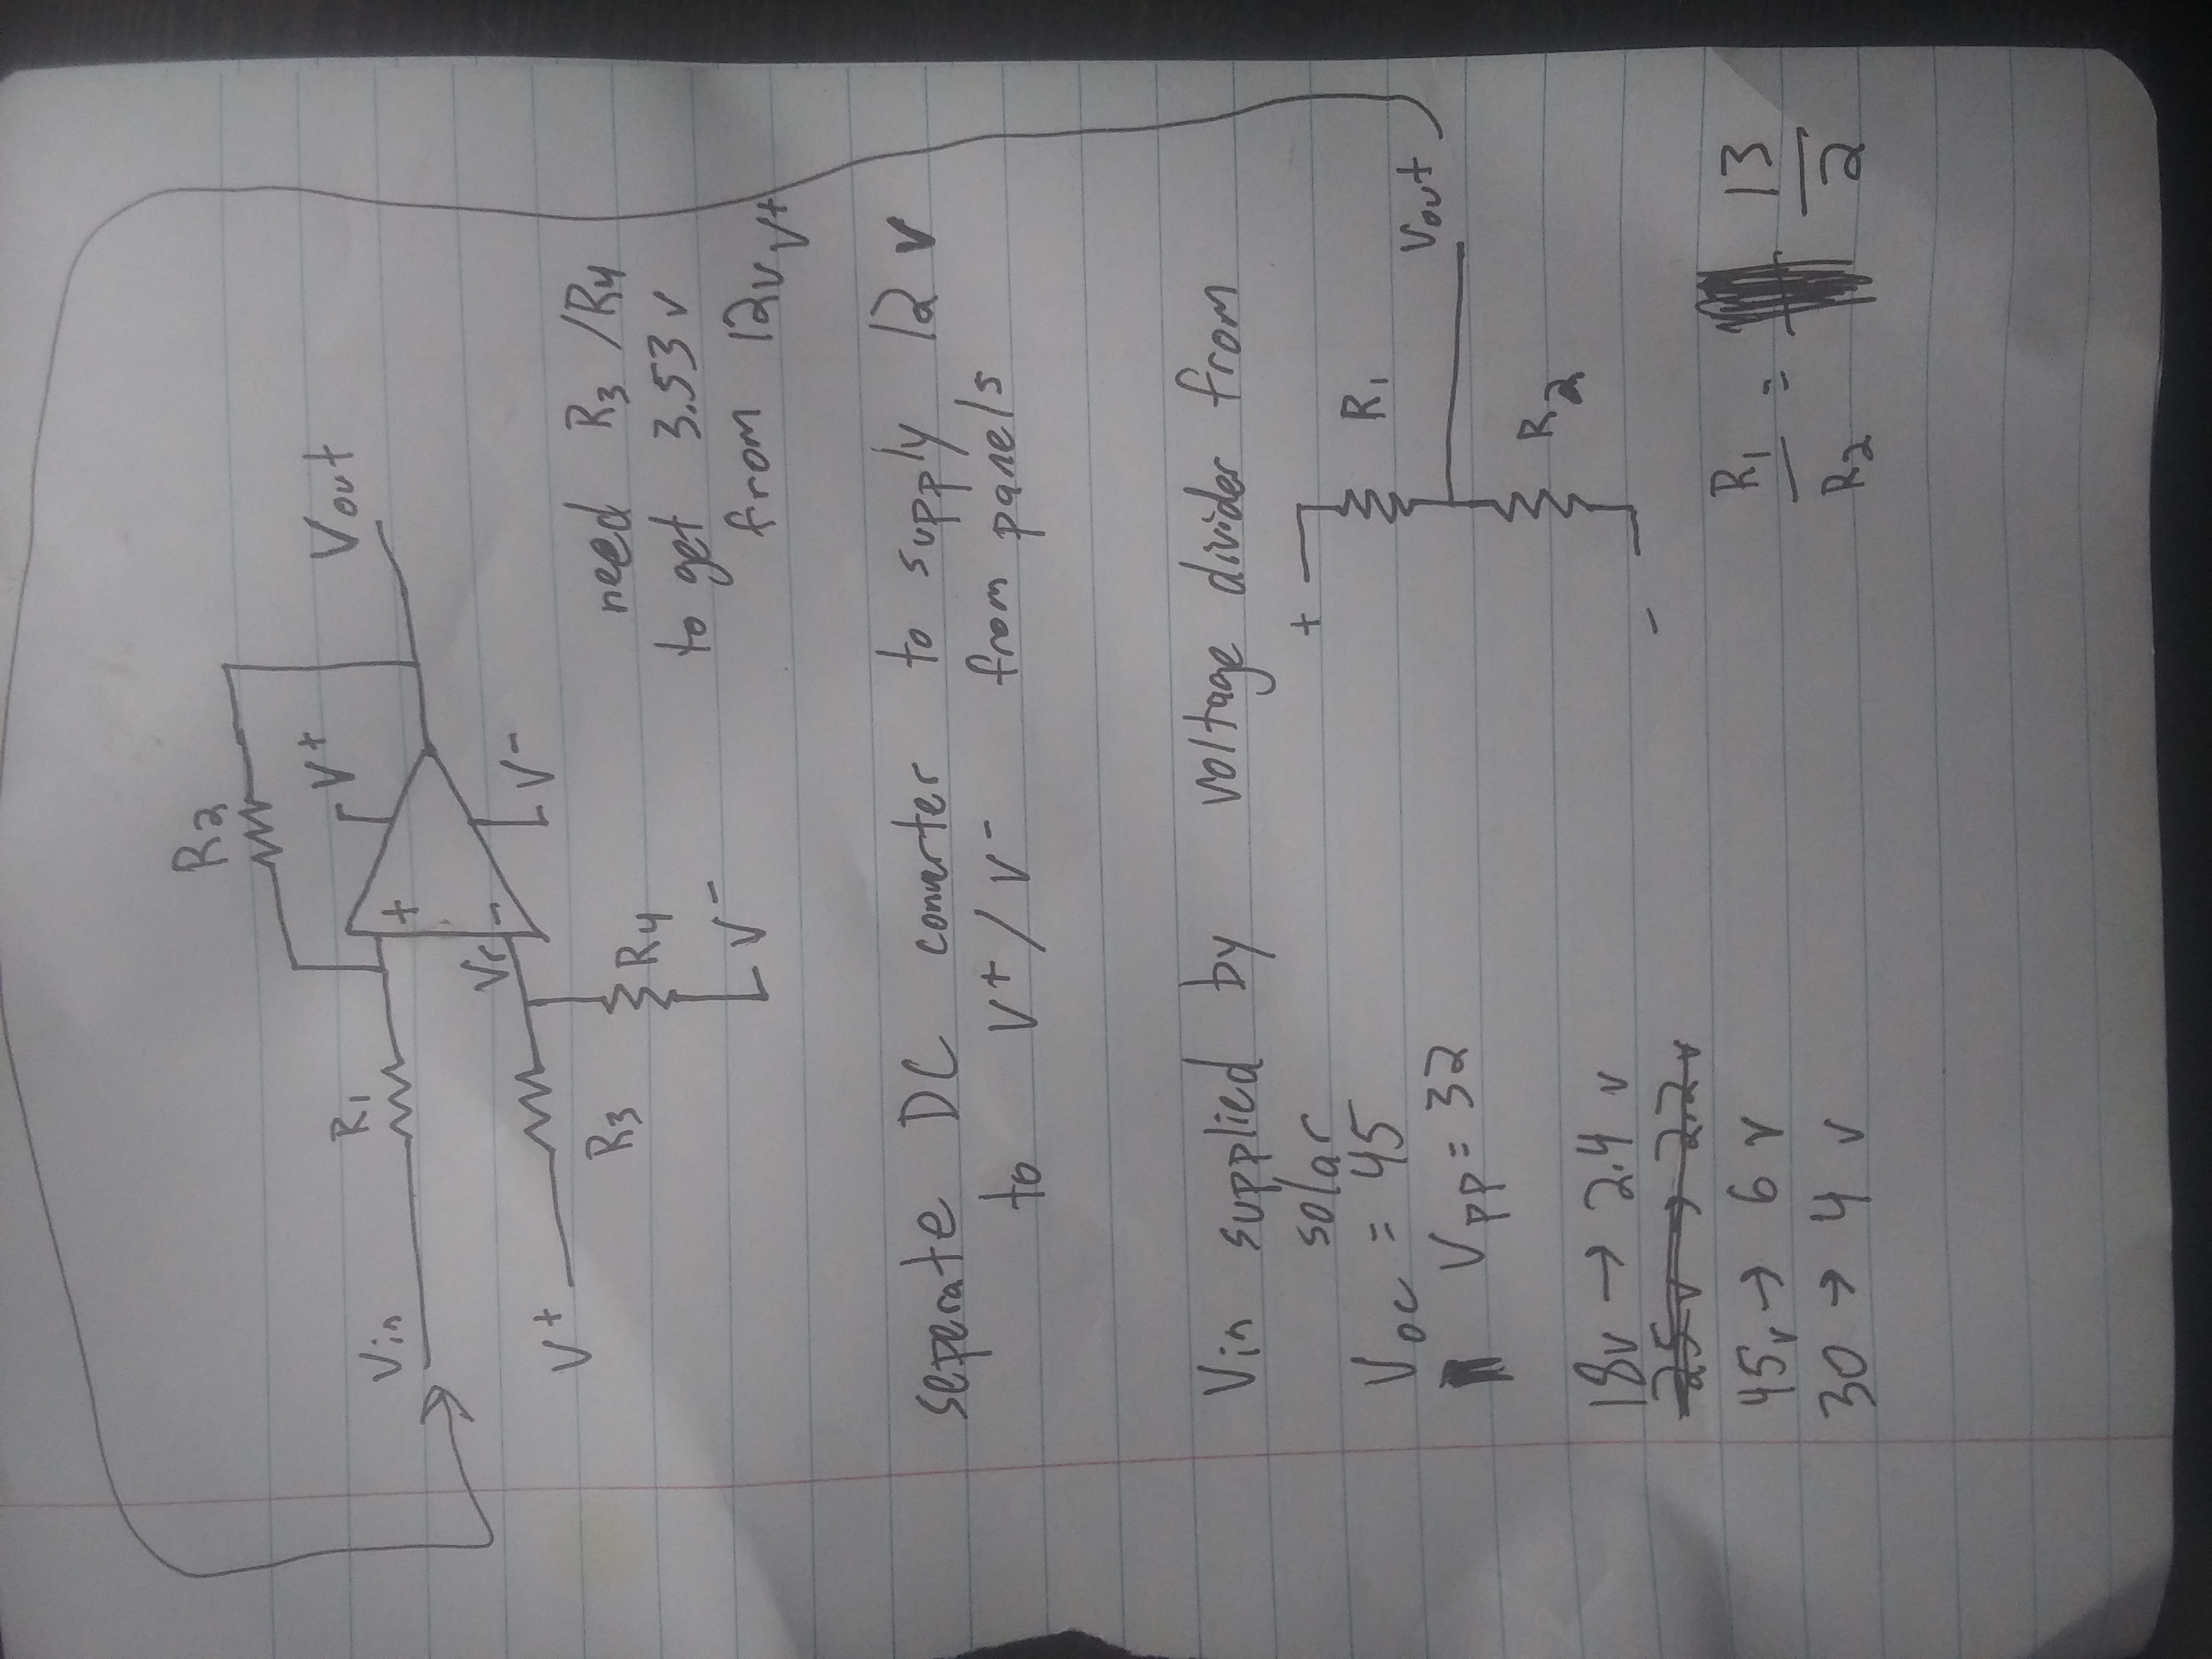 R2
V+
Vout
R1
Vin
+
Vr
-
V-
V+
R3
R4
V-
need R3 /R4
to get 3.53 v
from 12v V+
seperate DC converter to supply 12 v
to V+ / V- from panels
Vin supplied by voltage divider from
solar
+
R1
Voc = 45
Vout
Vpp = 32
R2
18v → 2.4 v
-
25v → 2.2v
45v → 6 v
R1/R2 = 13/2
30 → 4 v